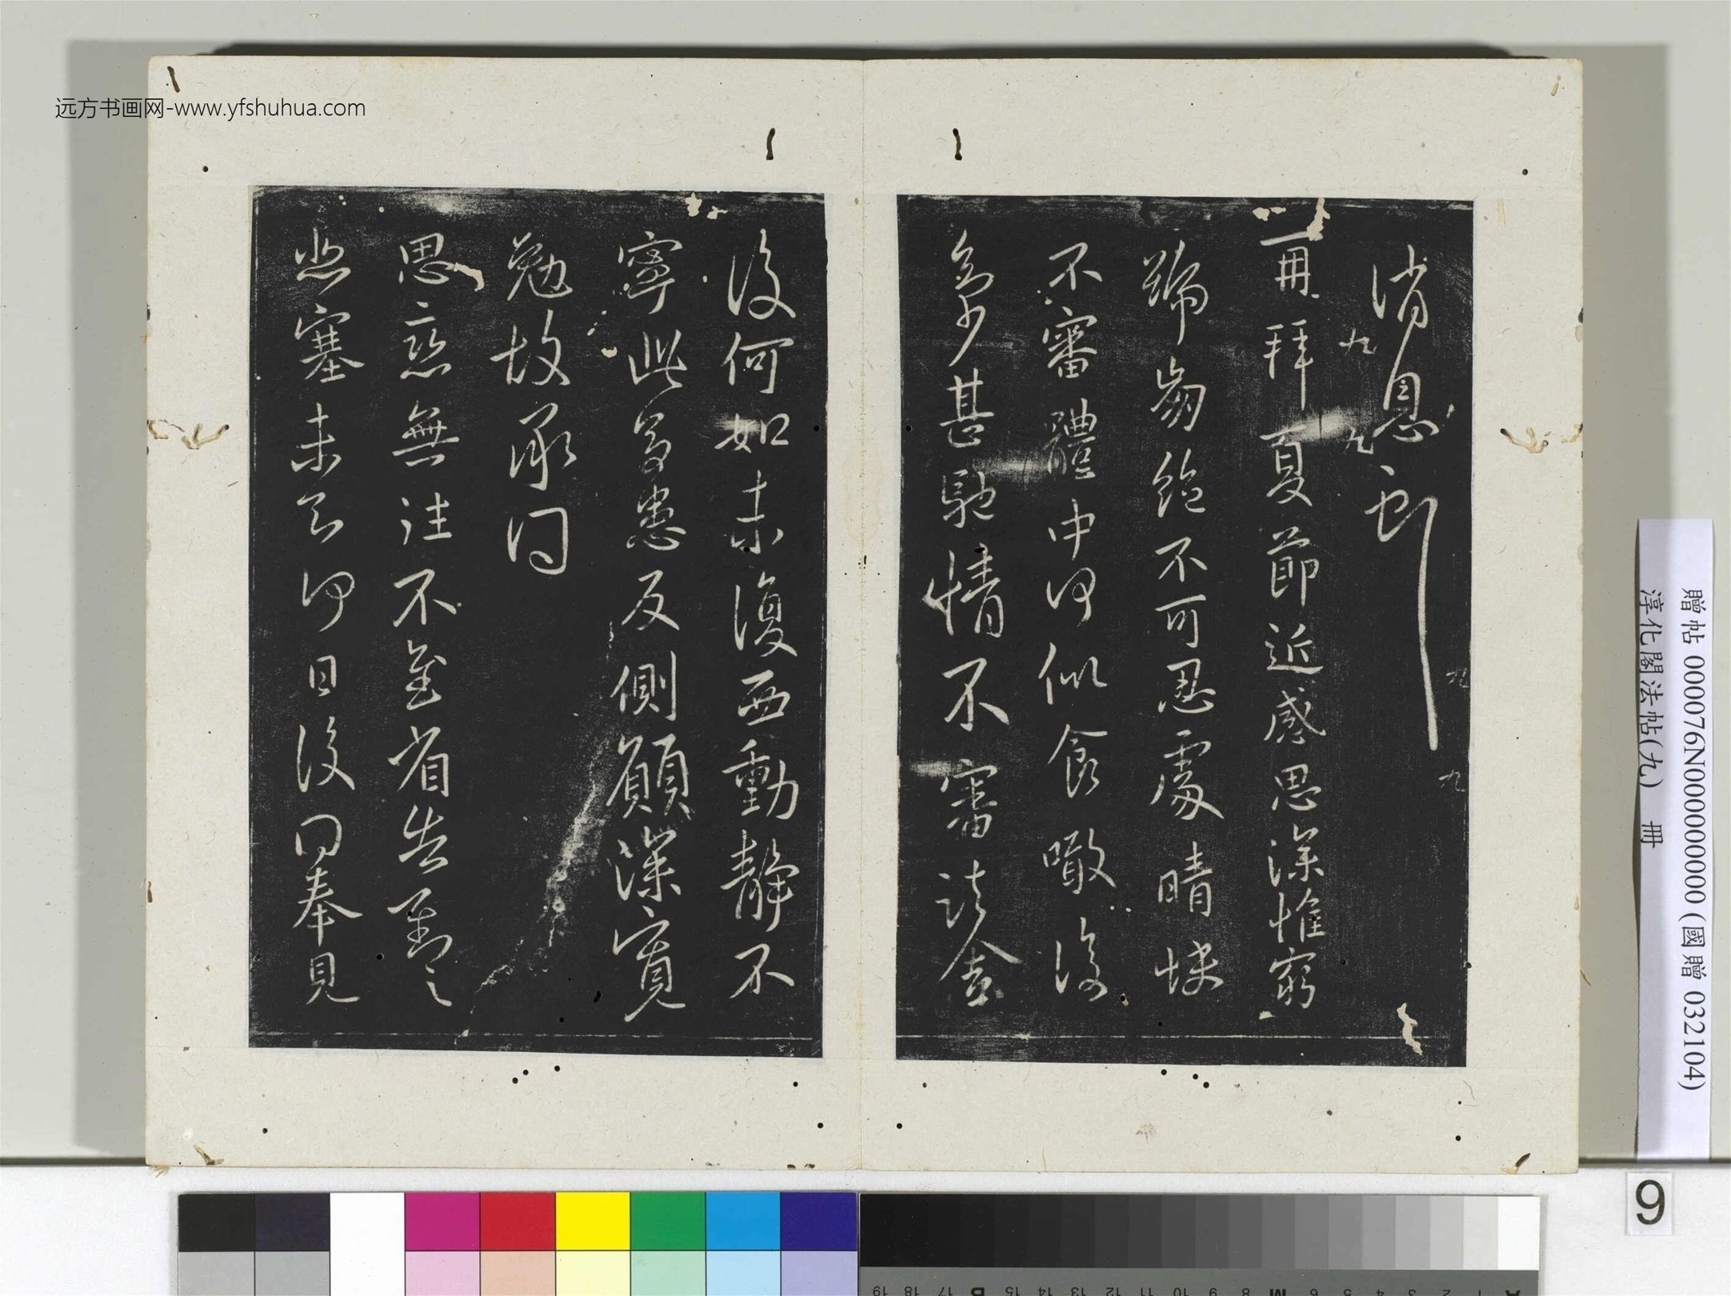 远方书画网-www.yfshuhua.com
消息耶
九
九
九
九
再拜夏節近感思深惟窮
號崩絕不可忍處晴快
不審體中何似食噉復
多少甚馳情不審諸舍
復何如未復西動靜不
寧此多患反側願深寬
勉故承問
思戀無往不至省告對之
悲塞未知何日復奉見
贈帖 000076N000000000 (國贈 032104)
淳化閣法帖(九) 冊
9